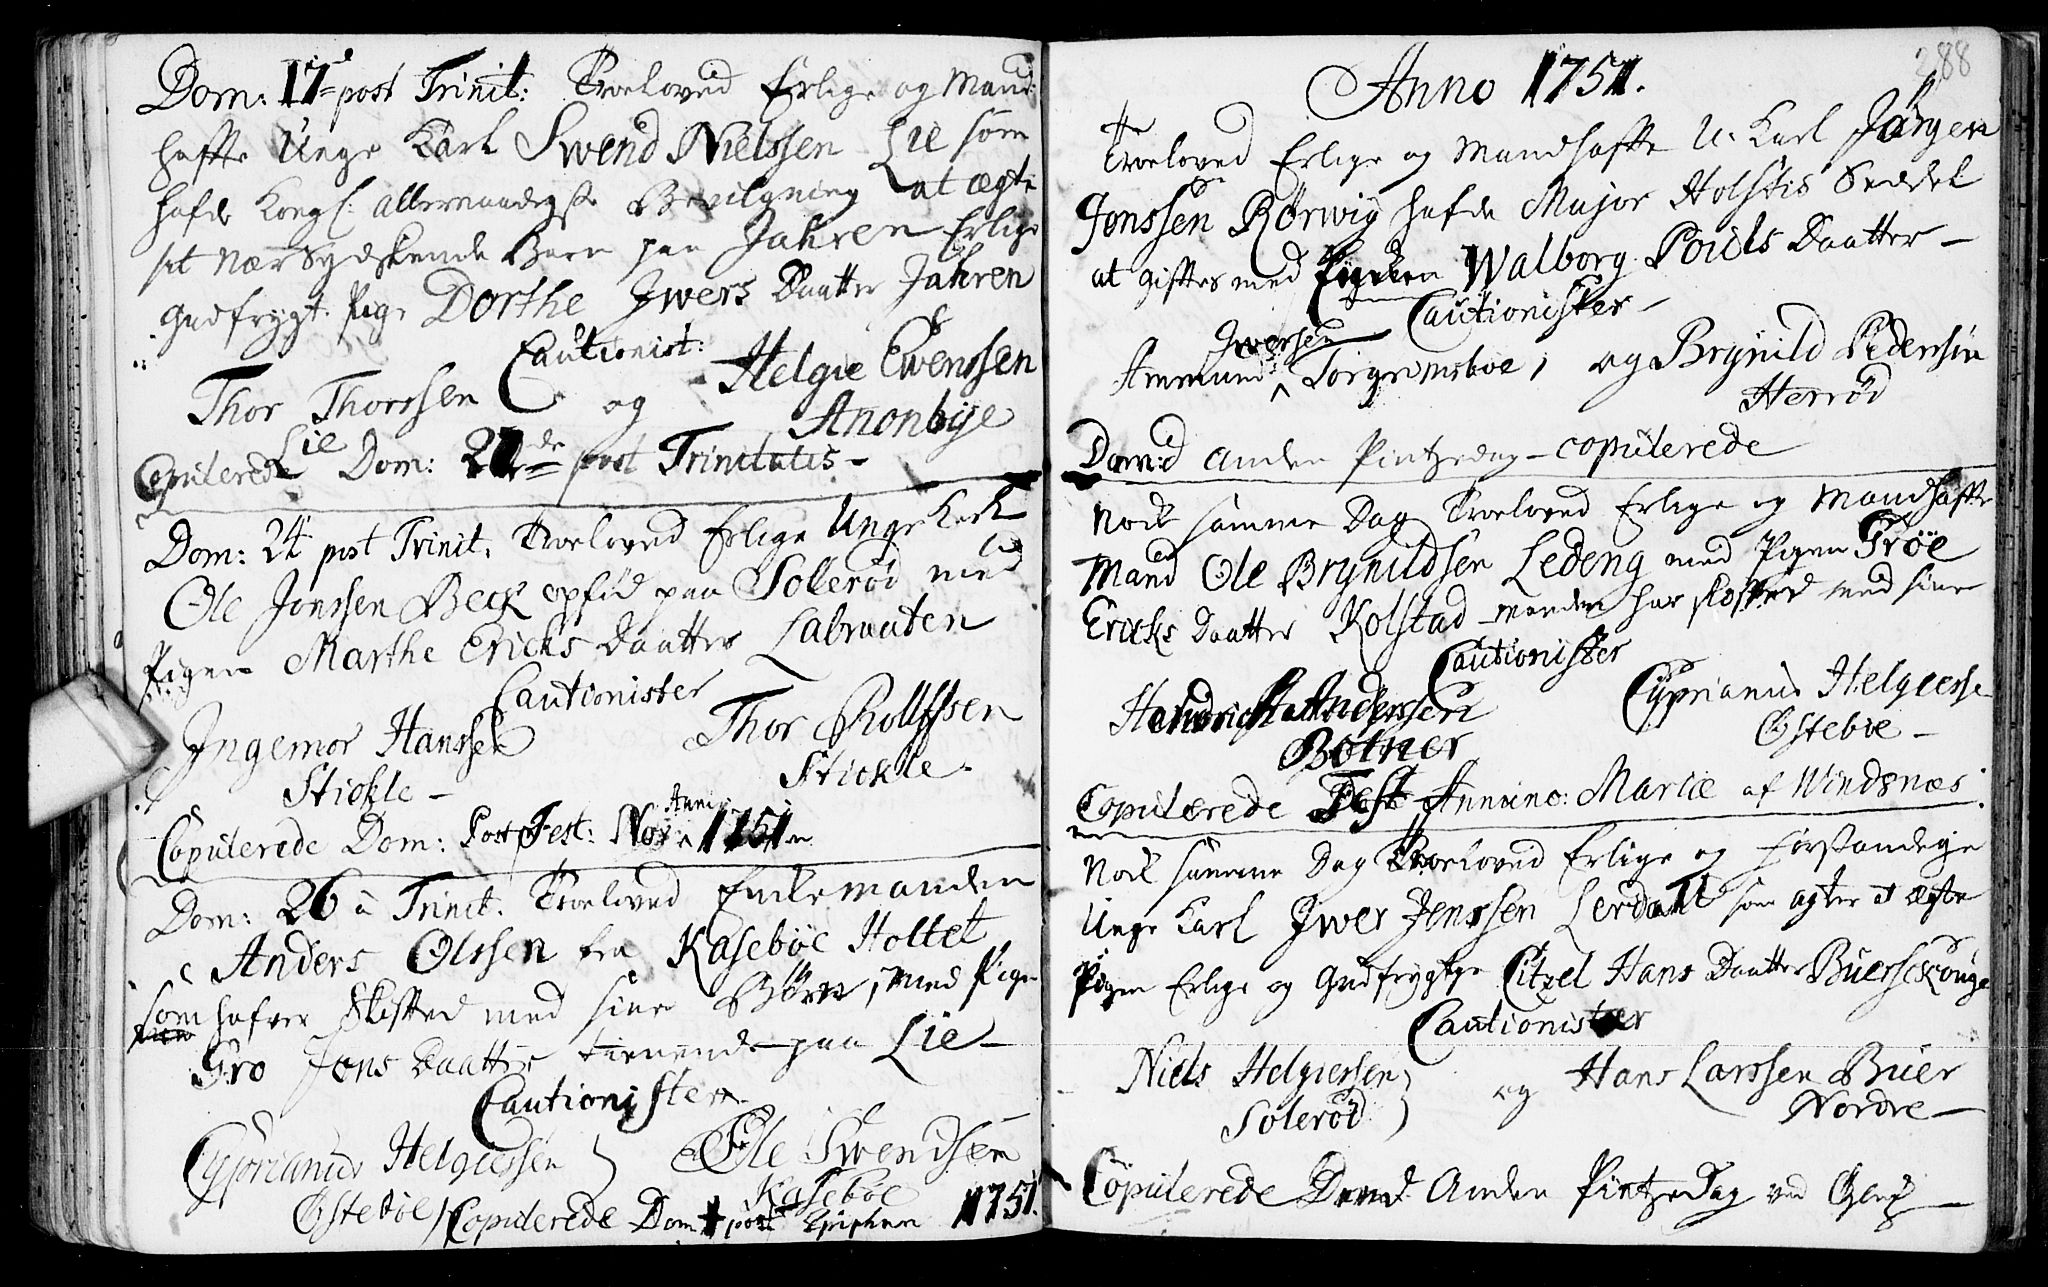 Dom: 17 post Trinit: Troeloved Erlige og Mand
haffte Unge Karl Swend Nielssen Lie som
hafde Kongl: allernaadigste Bevilgning at ægte
sit Nær Sydskende Barn paa Jahren Erlige
gudfrygt. Pige Dorthe Jwers Daatter Jahren
Cautionist:
Thor Thorssen og Helgie Ewenssen
Lie Anonbye
Copulerede Dom: 21de post Trinitatis-
Dom: 24 post Trinit. Troeloved Erlige Unge Karl
Ole Jonssen Beck opfød paa Solerød med
Pigen Marthe Ericks Daatter Labraaten
Cautionister
Ingemor Hanssen Thor Rollffsen
Stickle - Stickle.
Copulerede Dom: Post Fest: Nov: Anni 1751
Dom: 26 à Trinit. Troeloved Enkemanden
Anders Olssen fra Kasebøe Holtet
som hafver Skifted med sine Børn, med Pigen
Gro Jons Daatter tienende paa Lie-
Cautionister.
Cyprianus Helgiessen Ole Swendsen
Østebøe Kasebøe
Copulerede Dom 1 post Epiphan 1751.
288
Anno 1751.
Troeloved Erlige og Mandhaffte U. Karl Jörgen
Jonssen Rörwig hafde Major Holstis Seddel
at giftes med Pigen Walborg Poids Daatter -
Cautionister -
Ammund Jwersen Torgrimsboe, og Brynild Pedersen
Herrød
Dom:d Anden Pintzedag - copulerede
Nock samme Dag Troeloved Erlige og Mandhaffte
Mand Ole Brynildsen Ledeng med Pigen Tröe
Ericks Daatter Kolstad manden har skifted med sine
Cautionister
Anderssen Cyprianus Helgiesse
Botner Østeboe -
Copulerede Fest Annunc: Mariæ af Windsnæs
Nock samme Dag Troeloved Erlige og forstandige
Unge Karl Jwer Jenssen Lerdall som agter at ægte
Pigen Erlige og Gudfrygtige Citzel Hans Daatter Buerschouge
Cautionister
Niels Helgiessen og Hans Larssen Buer
Solerød Nordre -
Copulerede Dend Anden Pintzedag ved